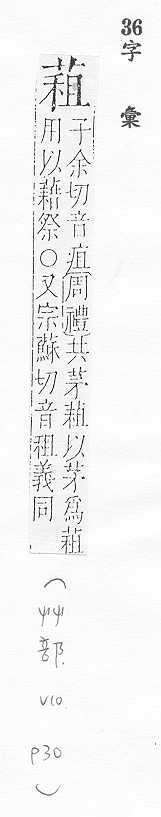 36
字彙
蒩
子余切音疽周禮共茅蒩以茅爲蒩
用以藉祭○又宗蘇切音租義同
(艸部 V10 P30)